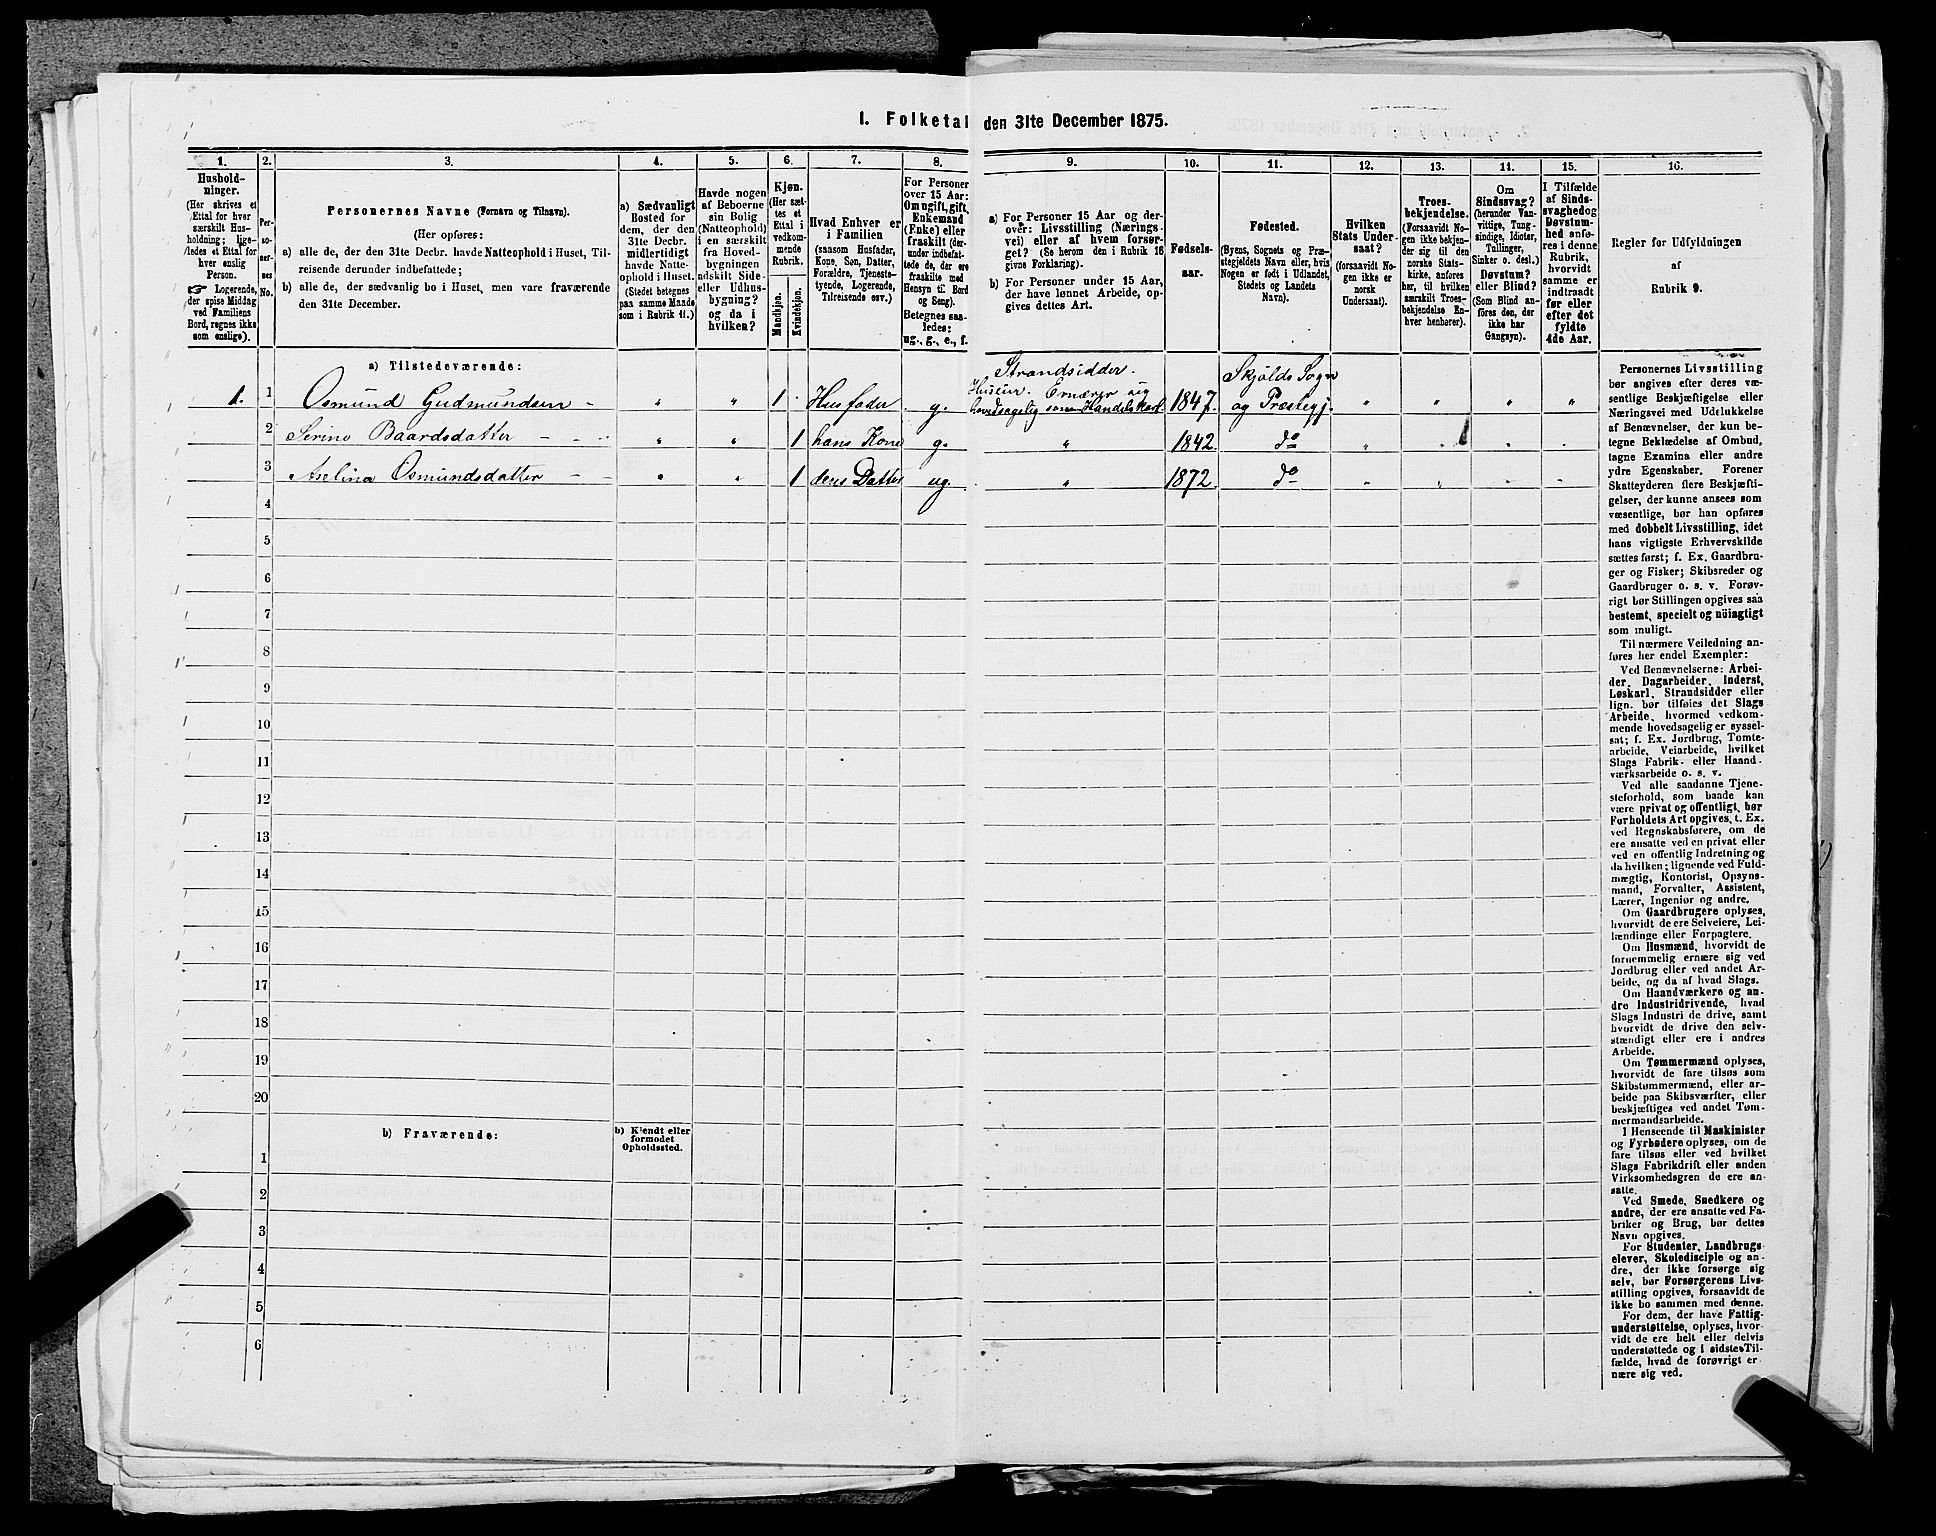 I. Folketal den 31te December 1875.
1.
2.
3.
4.
5.
6.
7.
8.
9.
10.
11.
12.
13.
14.
15.
16.
Hushold-
ninger.
(Her skrives et
Ettal for hver
særskilt Hus-
holdning; lige-
ledes et Ettal for
hver enslig
Person.
☞ Logerende,
der spise Middag
ved Familiens
Bord, regnes ikke
som enslige).
Per-
so-
ner-
nes
No.
Personernes Navne (Fornavn og Tilnavn).
(Her opføres:
a) alle de, der den 31te Decbr. havde Natteophold i Huset, Til-
reisende derunder indbefattede;
b) alle de, der sædvanlig bo i Huset, men vare fraværende
den 31te December.
a) Sædvanligt
Bosted for
dem, der den
31te Decbr.
midlertidigt
havde Natte-
ophold i Huset.
(Stedet betegnes
paa samme Maade
som i Rubrik 11.)
Havde nogen
af Beboerne
sin Bolig
(Natteophold)
i en særskilt
fra Hoved-
bygningen
adskilt Side-
eller Udhus-
bygning?
og da i
hvilken?
Kjøn.
(Her sæt-
tes et
Ettal i
vedkom-
mende
Rubrik.
Mandkjøn.
Kvindekjøn.
Hvad Enhver er
i Familien
(saasom Husfader,
Kone, Søn, Datter,
Forældre, Tjeneste-
tyende, Logerende,
Tilreisende osv.)
For Personer
over 15 Aar:
Om gift, gift,
Enkemand
(Enke) eller
fraskilt (der-
under indbefat-
tede de, der ere
fraskilte med
Hensyn til Bord
og Seng).
Betegnes saa-
ledes:
ug., g., e., f.
a) For Personer 15 Aar og der-
over: Livsstilling (Nærings-
vei) eller af hvem forsør-
get? (Se herom den i Rubrik 16
givne Forklaring).
b) For Personer under 15 Aar,
der have lønnet Arbeide, op-
gives dettes Art.
Fødsels-
aar.
Fødested.
(Byens, Sognets og Præ-
stegjeldets Navn eller, hvis
Nogen er født i Udlandet,
Stedets og Landets
Navn).
Hvilken
Stats Under-
saat?
(forsaavidt No-
gen ikke er
norsk
Undersaat).
Troes-
bekjendelse.
(Forsaavidt No-
gen ikke bekjen-
der sig til den
norske Stats-
kirke, anføres
her, til hvilken
særskilt Troes-
bekjendelse En-
hver henhører).
Om
Sindssvag?
(herunder Van-
vittige, Tung-
sindige, Idioter,
Tullinger,
Sinker o. desl.)
Døvstum?
eller Blind?
(Som Blind an-
føres den, der
ikke har
Gangsyn).
I Tilfælde
af Sinds-
svaghed og
Døvstum-
hed anfø-
res i denne
Rubrik,
hvorvidt
samme er
indtraadt
før eller
efter det
fyldte
4de Aar.
Regler for Udfyldningen
af
Rubrik 9.
a) Tilstedeværende:
1. 1 Osmund Gudmundsen - " " 1 Husfader g. Strandsidder. Huseier. Ernærer sig hovedsagelig som Handelskarl. 1847. Skjolds Sogn og Præstegj. " " " "
2 Serine Baardsdatter - - " " 1 hans Kone g. " 1842. do " " " "
3 Aselina Osmundsdatter - - " " 1 deres Datter ug. " 1872. do " " " "
4
5
6
7
8
9
10
11
12
13
14
15
16
17
18
19
20
b) Fraværende:
b) Kjendt eller
formodet
Opholdssted.
1
2
3
4
5
6
Personernes Livsstilling
bør angives efter deres væ-
sentlige Beskjæftigelse eller
Næringsvei med Udelukkelse
af Benævnelser, der kun be-
tegne Beklædelse af Ombud,
tagne Examina eller andre
ydre Egenskaber. Forener
Skatteyderen flere Beskjæfti-
gelser, der kunne ansees som
væsentlige, bør han opføres
med dobbelt Livsstilling, idet
hans vigtigste Erhvervskilde
sættes først; f. Ex. Gaardbru-
ger og Fisker; Skibsreder og
Gaardbruger o. s. v. Forøv-
rigt bør Stillingen opgives saa
bestemt, specielt og nøiagtigt
som muligt.
Til nærmere Veiledning an-
føres her endel Exempler:
Ved Benævnelserne: Arbei-
der, Dagarbeider, Inderst,
Løskarl, Strandsidder eller
lign. bør tilføies det Slags
Arbeide, hvormed vedkom-
mende hovedsagelig er syssel-
sat; f. Ex. Jordbrug, Tomte-
arbeide, Veiarbeide, hvilket
Slags Fabrik- eller Haand-
værksarbeide o. s. v.
Ved alle saadanne Tjene-
steforhold, som baade kan
være privat og offentligt, bør
Forholdets Art opgives, t. Ex.
ved Regnskabsførere, om de
ere ansatte ved en privat eller
ved en offentlig Indretning og
da hvilken; lignende ved Fuld-
mægtig, Kontorist, Opsyns-
mand, Forvalter, Assistent,
Lærer, Ingeniør og andre.
Om Gaardbrugere oplyses,
hvorvidt de ere Selveiere, Lei-
lændinge eller Forpagtere.
Om Husmænd, hvorvidt de
fornemmelig ernære sig ved
Jordbrug eller ved andet Ar-
beide, og da af hvad Slags.
Om Haandværkere og an-
dre Industridrivende, hvad
Slags Industri de drive, samt
hvorvidt de drive den selv-
stændigt eller ere i andres
Arbeide.
Om Tømmermænd oplyses,
hvorvidt de fare tilsøs som
Skibstømmermænd, eller ar-
beide paa Skibsværfter, eller
beskjæftiges ved andet Tøm-
mermandsarbeide.
I Henseende til Maskinister
og Fyrbødere oplyses, om de
fare tilsøs eller ved hvilket
Slags Fabrikdrift eller anden
Virksomhedsgren de ere an-
satte.
Ved Smede, Snedkere og
andre, der ere ansatte ved Fa-
briker og Brug, bør dettes
Navn opgives.
For Studenter, Landbrugs-
elever, Skoledisciple og an-
dre, der ikke forsørge sig
selv, bør Forsørgerens Livs-
stilling opgives, forsaavidt de
ikke bo sammen med denne.
For dem, der have Fattig-
understøttelse, oplyses, hvor-
vidt de ere helt eller delvis
understøttede og i sidste Til-
fælde, hvad de forøvrigt er-
nære sig ved.